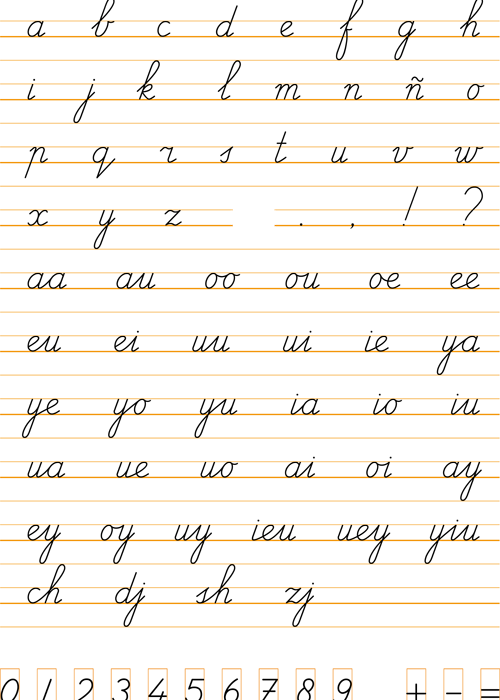 a b c d e f g h
i j k l m n ñ o
p q r s t u v w
x y z . , ! ?
aa au oo ou oe ee
eu ei uu ui ie ya
ye yo yu ia io iu
ua ue uo ai oi ay
ey oy uy ieu uey yiu
ch dj sh zj
0 1 2 3 4 5 6 7 8 9 + - =